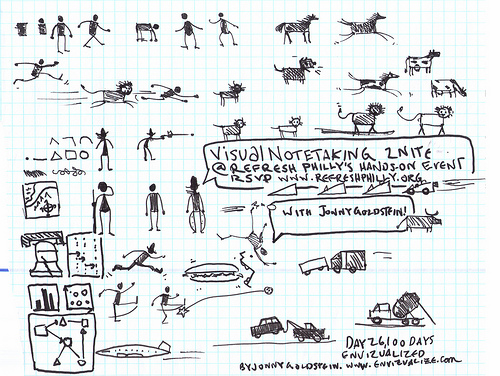 Visual NOTETAKING 2NITE
@ REFRESH PHILLY'S HANDS-ON EVENT
RSVP WWW.REFRESHPHILLY.ORG
WITH JONNY GOLDSTEIN!
DAY 26, 100 DAYS
ENVIZUALIZED
BY JONNY GOLDSTEIN. WWW.ENVIZUALIZE.COM